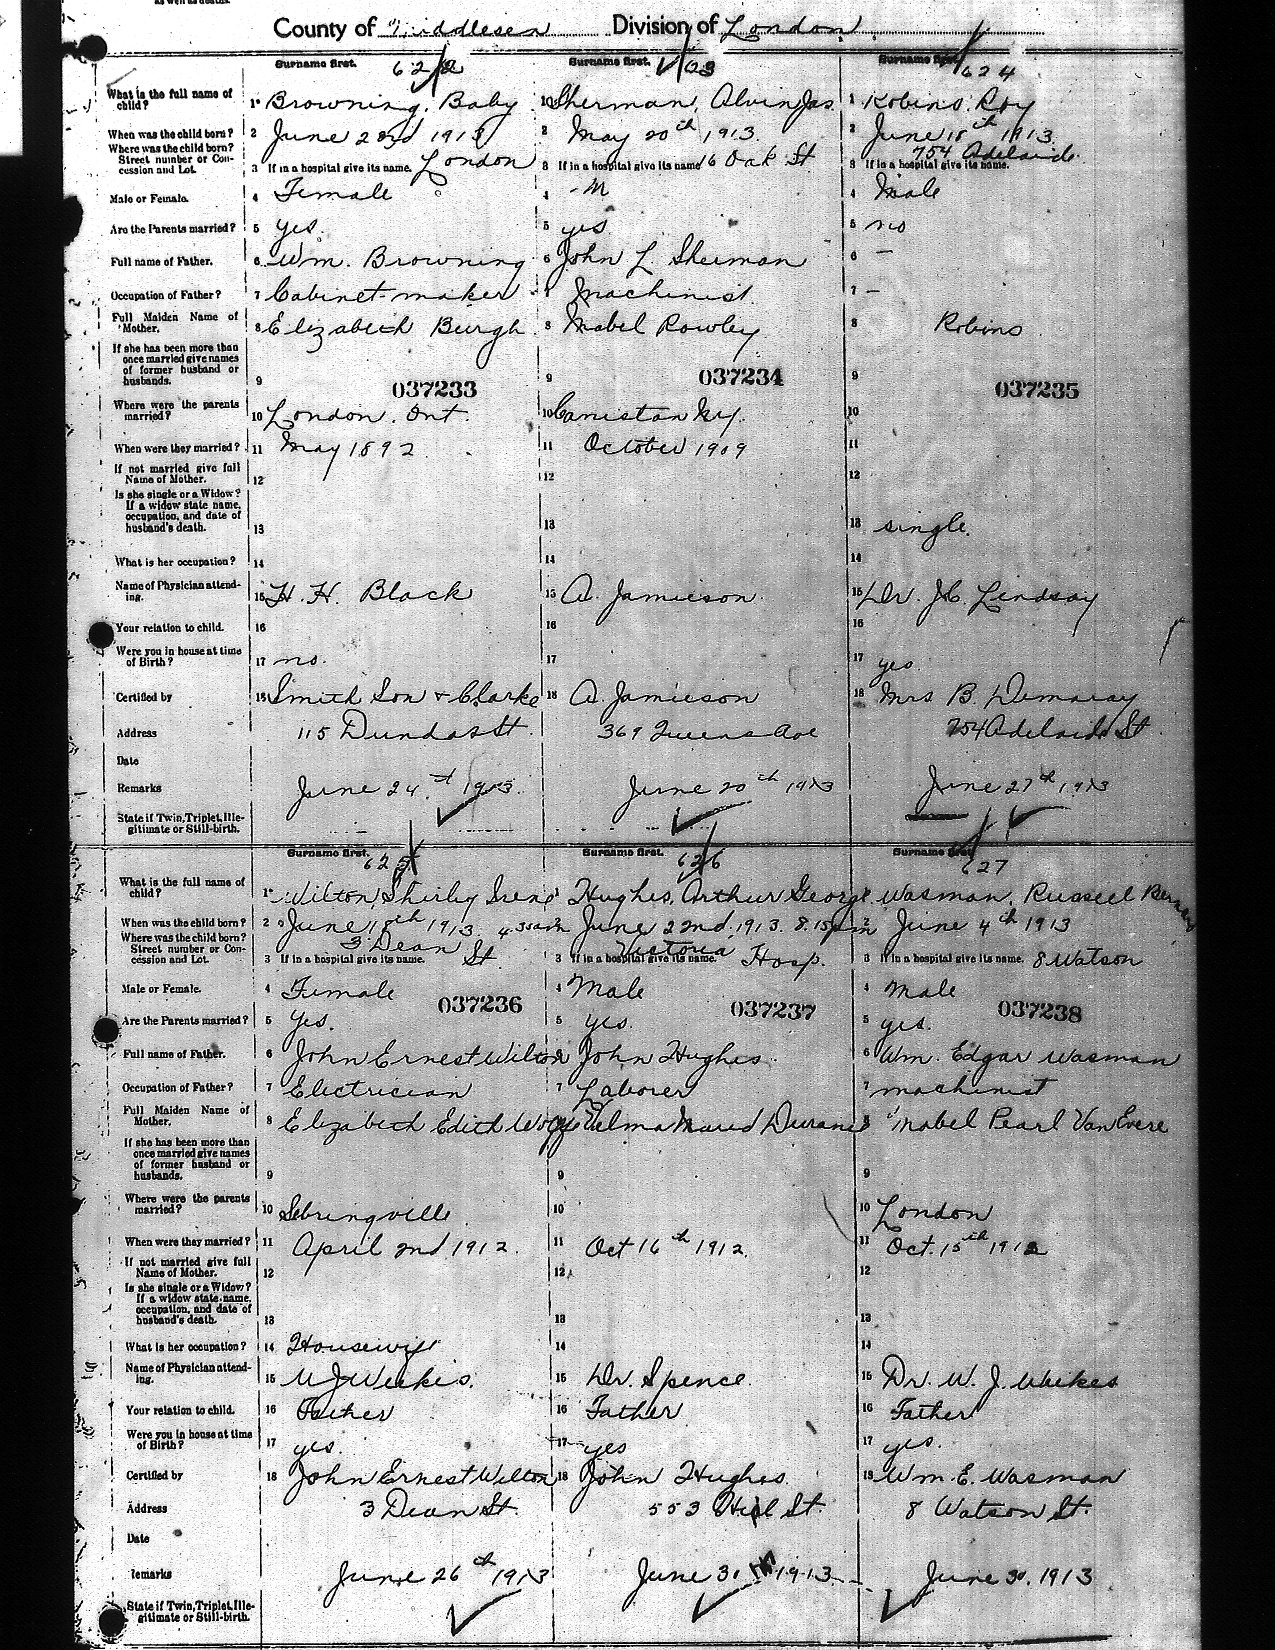 as well as deaths.
County of Middlesex Division of London
Surname first. 622 Surname first. 623 Surname first. 624
What is the full name of child? 1 Browning, Baby 1 Sherman, Alvin Jas. 1 Robins, Roy
When was the child born? 2 June 23rd 1913 2 May 20th 1913. 2 June 18th 1913
Where was the child born? Street number or Concession and Lot. 3 If in a hospital give its name. London 3 If in a hospital give its name 16 Oak St 3 If in a hospital give its name. 754 Adelaide
Male or Female. 4 Female 4 M 4 Male
Are the Parents married? 5 yes. 5 yes 5 no
Full name of Father. 6 Wm. Browning 6 John L Sherman 6 —
Occupation of Father? 7 Cabinet-maker 7 Machinist 7 —
Full Maiden Name of Mother. 8 Elizabeth Burgh 8 Mabel Rowley 8 Robins
If she has been more than once married give names of former husband or husbands. 9 9 9
037233 037234 037235
Where were the parents married? 10 London. Ont. 10 10
When were they married? 11 May 1892. 11 October 1909 11
If not married give full Name of Mother. 12 12 12
Is she single or a Widow? If a widow state name, occupation, and date of husband's death. 13 13 13 single.
What is her occupation? 14 14 14
Name of Physician attending. 15 H. H. Black 15 A. Jamieson 15 Dr. J.C. Lindsay
Your relation to child. 16 16 16
Were you in house at time of Birth? 17 no. 17 17 yes
Certified by 18 Smith Son & Clarke 18 A Jamieson 18 Mrs B. Demaray
Address 115 Dundas St. 369 Queens Ave 754 Adelaide St
Date
Remarks June 24 1913. June 20th 1913 June 27th 1913
State if Twin, Triplet, Illegitimate or Still-birth.
Surname first. 625 Surname first. 626 Surname first. 627
What is the full name of child? 1 Wilton, Shirly Irene 1 Hughes, Arthur George 1 Wasman, Russell
When was the child born? 2 June 18th 1913. 2 June 22nd. 1913. 8.15 pm 2 June 4th 1913
Where was the child born? Street number or Concession and Lot. 3 If in a hospital give its name. 3 Dean St 3 If in a hospital give its name. Victoria Hosp. 3 If in a hospital give its name. 8 Watson
Male or Female. 4 Female 4 Male 4 Male
037236 037237 037238
Are the Parents married? 5 Yes. 5 yes. 5 yes.
Full name of Father. 6 John Ernest Wilton 6 John Hughes. 6 Wm. Edgar Wasman
Occupation of Father? 7 Electrician 7 Laborer 7 Machinist
Full Maiden Name of Mother. 8 Elizabeth Edith 8 Maud 8 Mabel Pearl VanEvere
If she has been more than once married give names of former husband or husbands. 9 9 9
Where were the parents married? 10 Sebringville 10 10 London
When were they married? 11 April 2nd 1912. 11 Oct 16th 1912. 11 Oct. 15th 1912
If not married give full Name of Mother. 12 12 12
Is she single or a Widow? If a widow state name, occupation, and date of husband's death. 13 13 13
What is her occupation? 14 Housewife 14 14
Name of Physician attending. 15 W J Weekes. 15 Dr. Spence. 15 Dr. W. J. Weekes
Your relation to child. 16 Father 16 Father 16 Father
Were you in house at time of Birth? 17 yes. 17 yes 17 yes.
Certified by 18 John Ernest Wilton 18 John Hughes. 18 Wm. E. Wasman
Address 3 Dean St. 553 Hill St. 8 Watson St.
Date
Remarks June 26th 1913 June 30 1913. June 30, 1913
State if Twin, Triplet, Illegitimate or Still-birth.